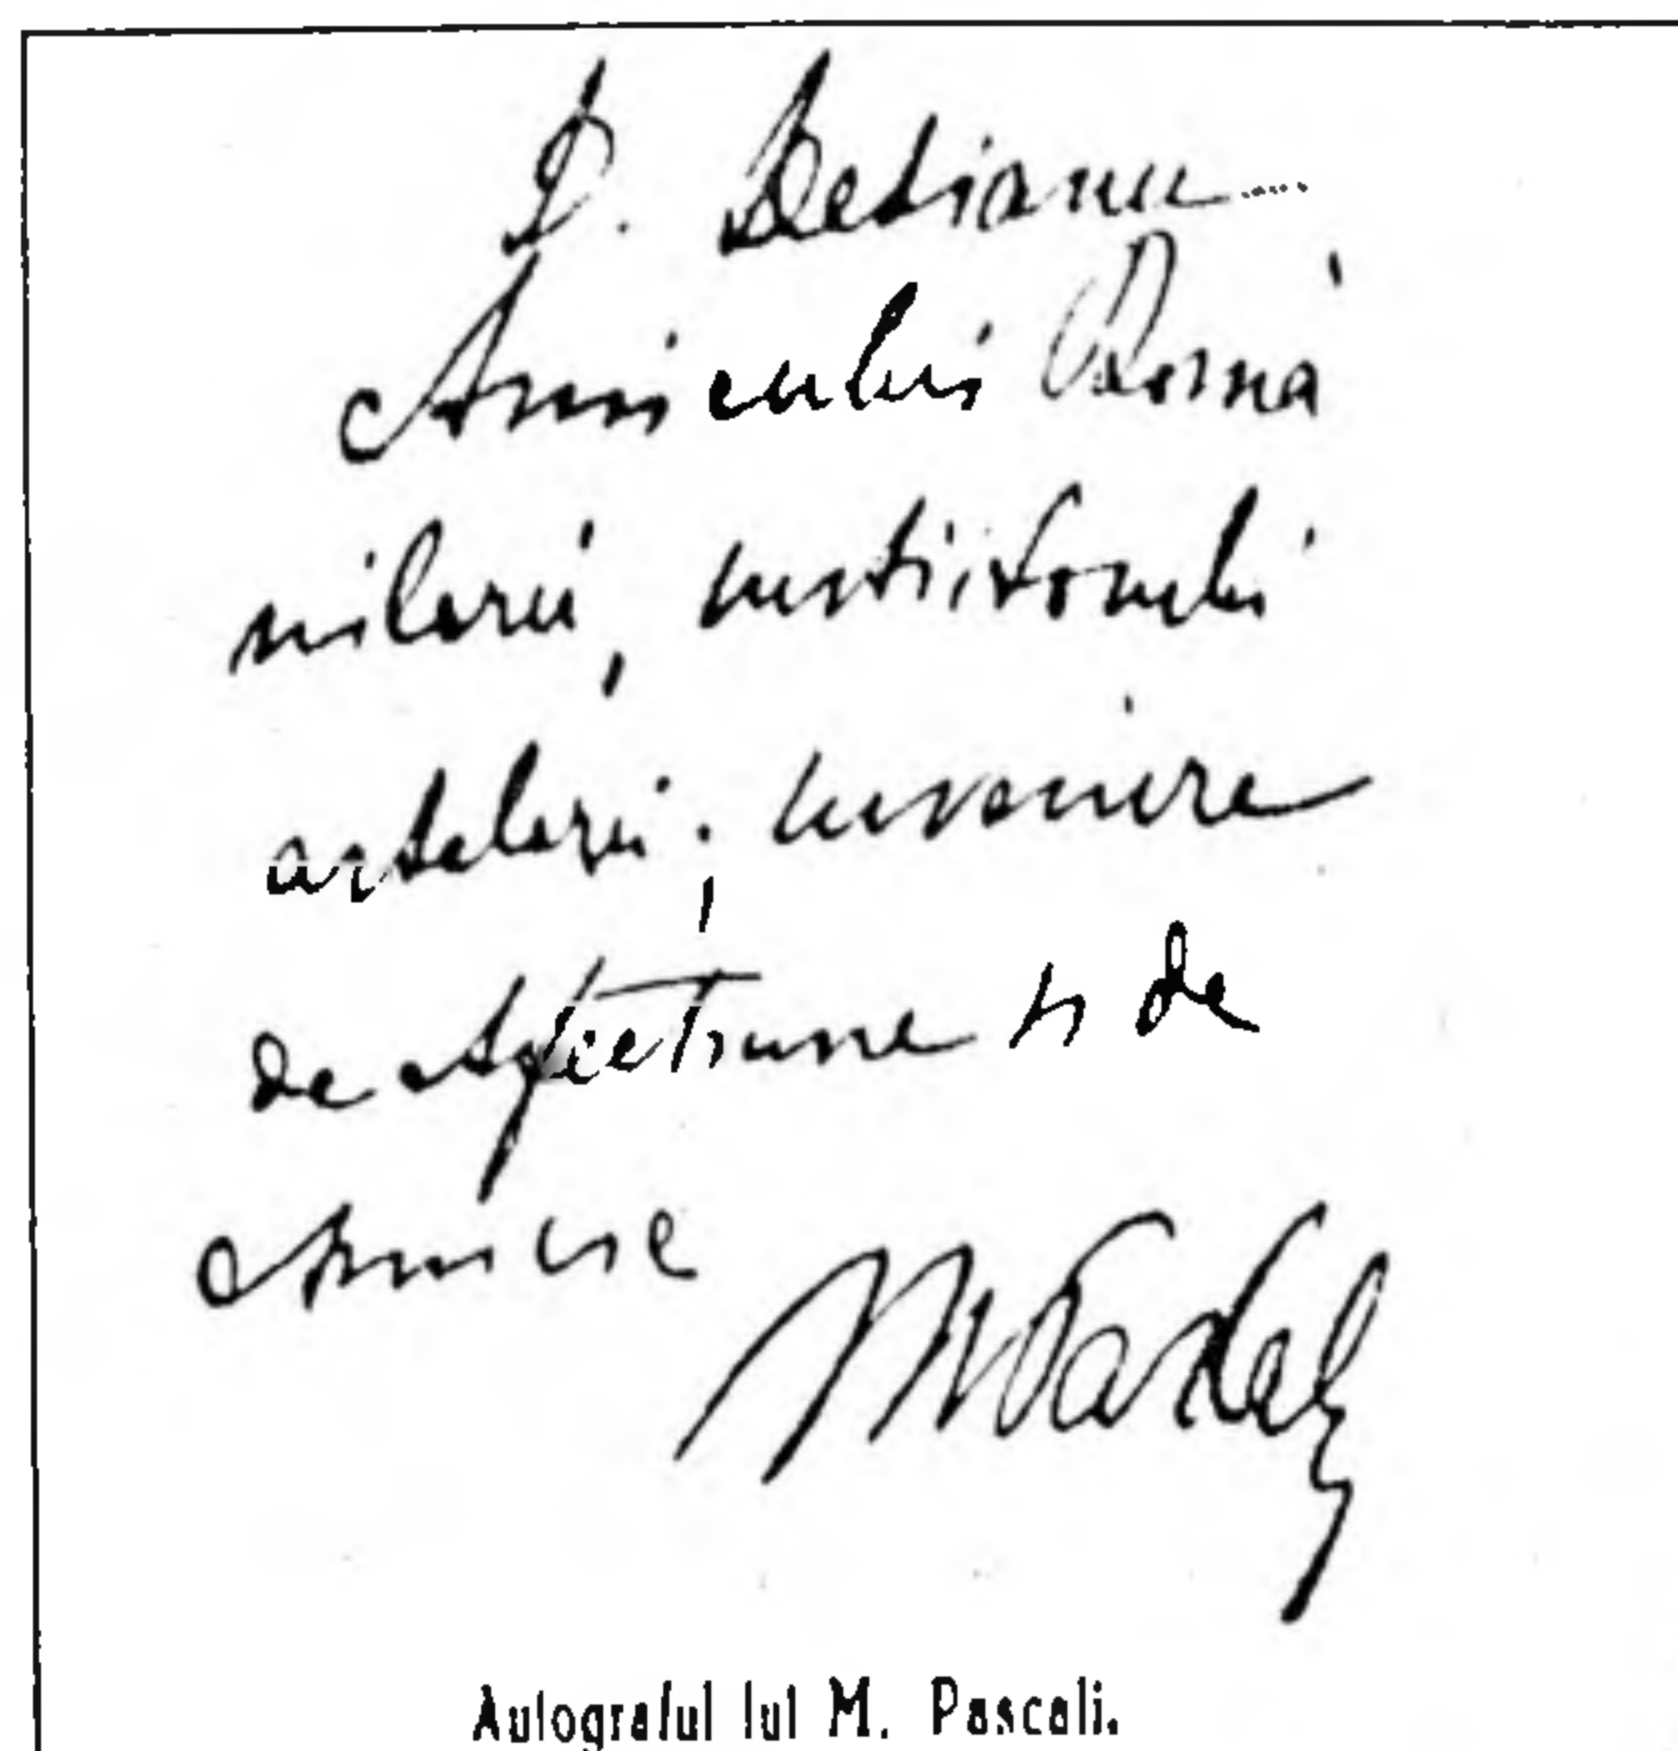 D. Detianu
Amicului Româ
nilorŭ, sustiitorului
artelorŭ; suvenire
de Afectiune si de
Amicie
M Pascaly
Autograful lui M. Pascali.